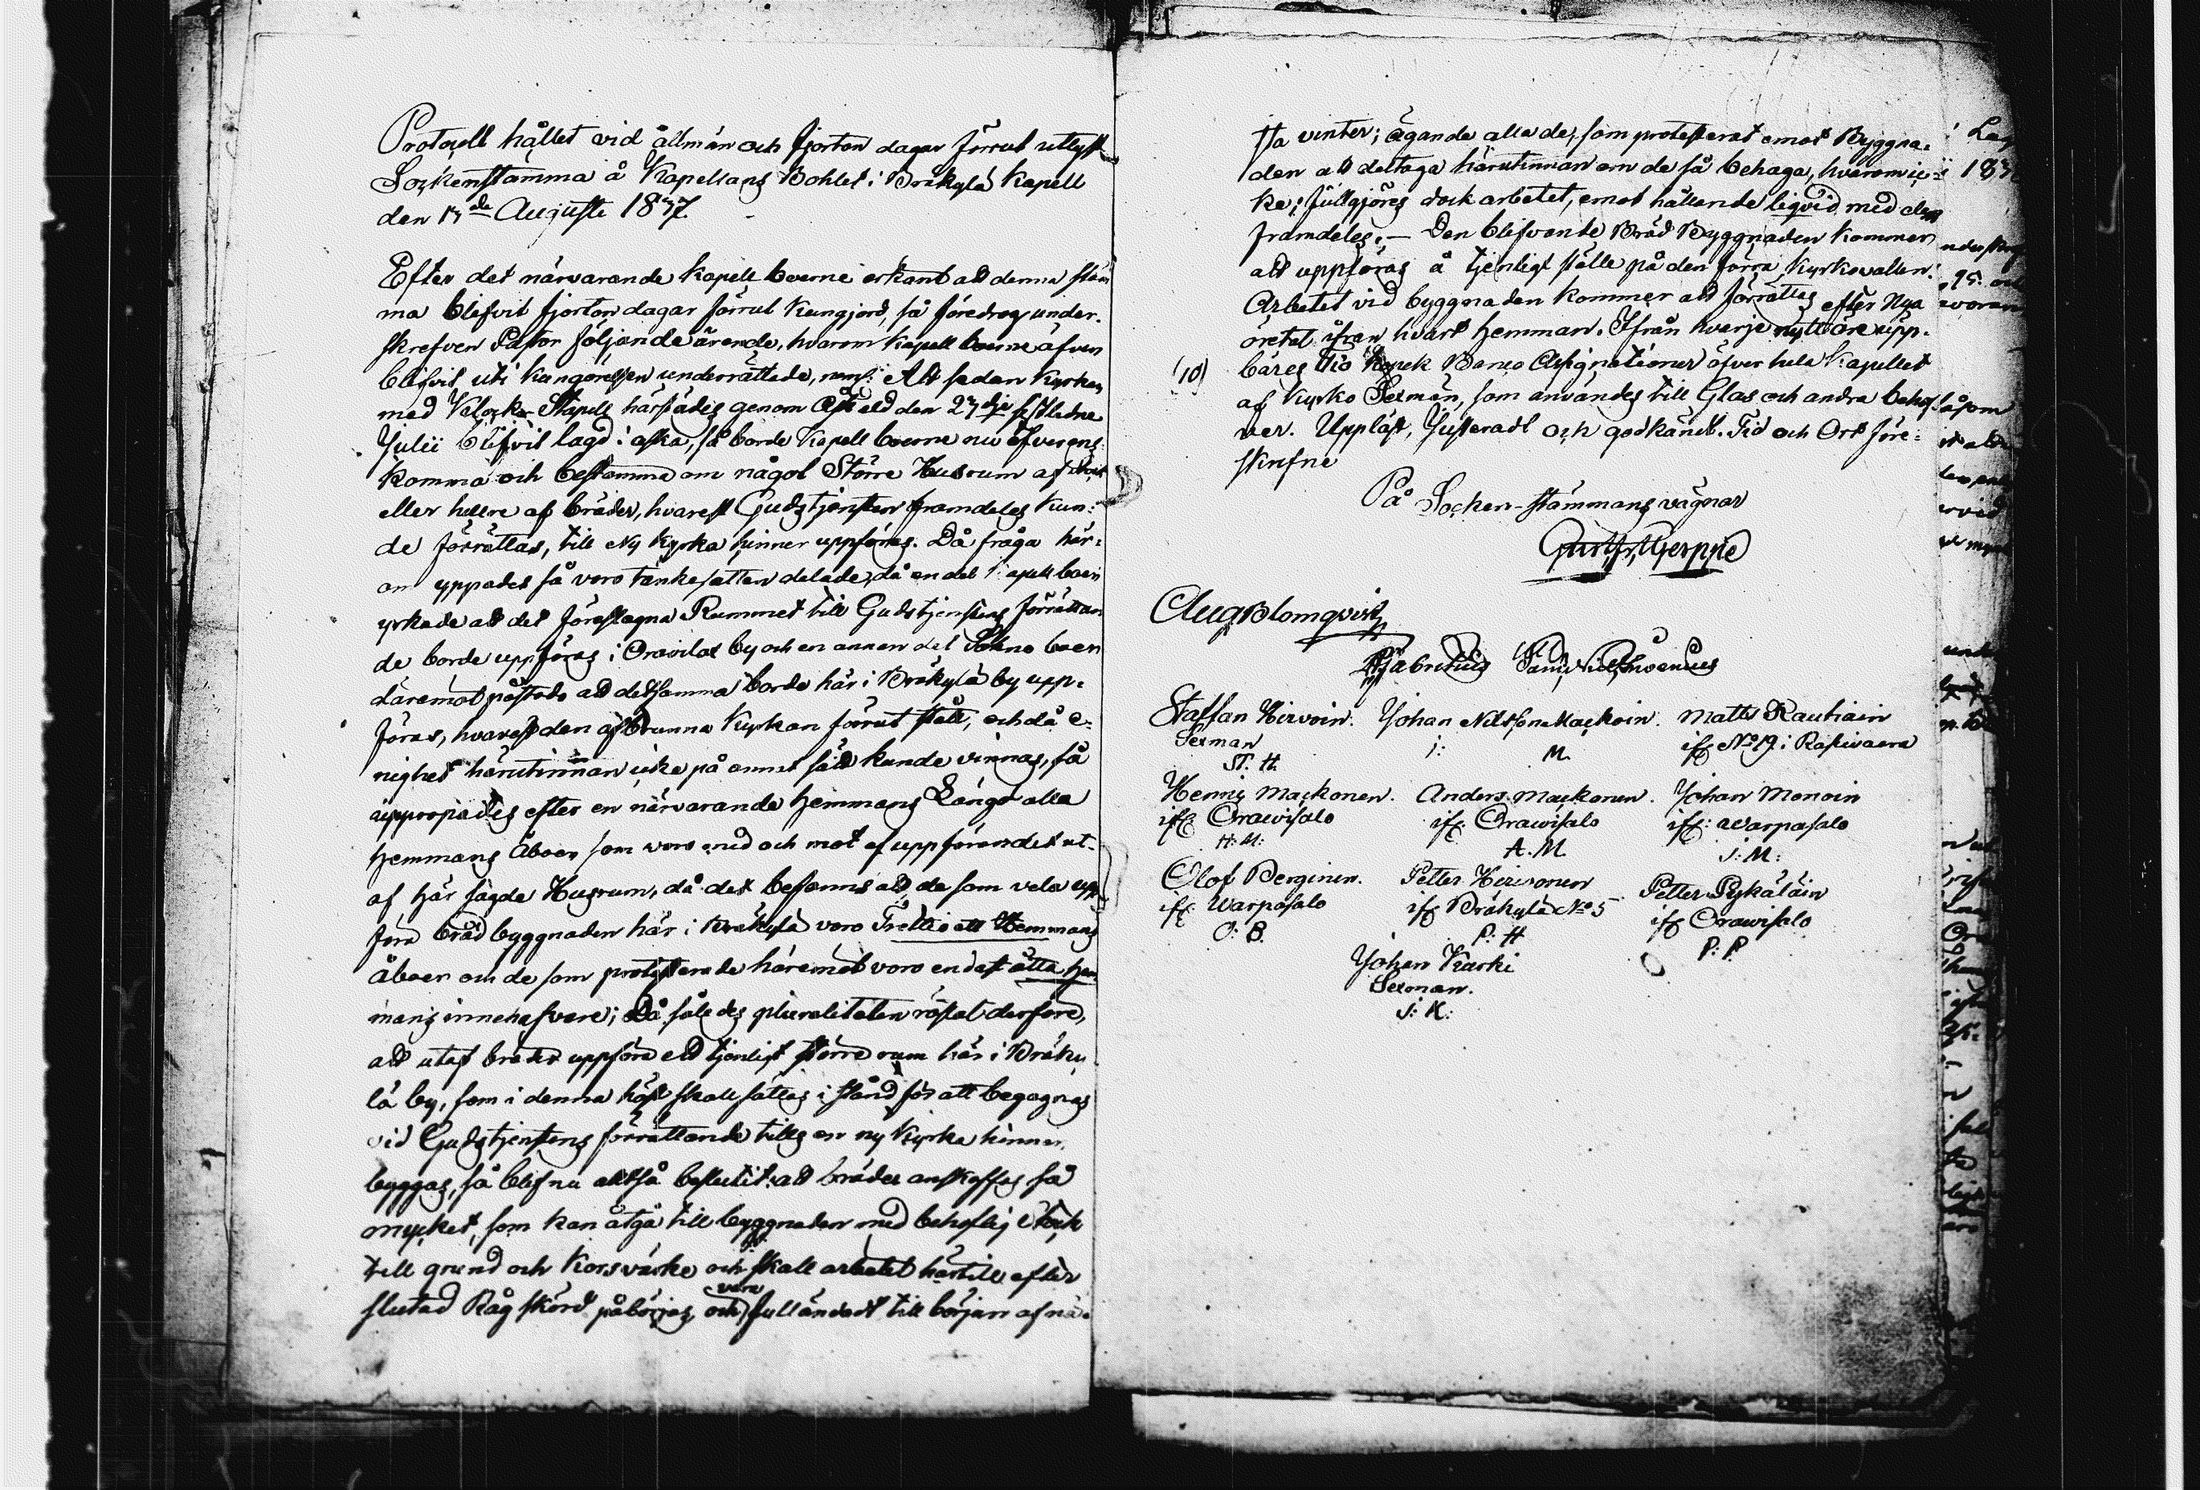 Protocoll hållet vid allmän och fjorton dagar förrut utlyst
Sockenstämma å Kapellans Bohlet i Bräkylä Kapell
den 13de Augusti 1837.
Efter det närvarande Kapellboerne erkänt att denna stäm
ma blifvit fjorton dagar förrut kungjord, så föredrog under-
skrefven Pastor följande ärende, hvarom Kapellboerne äfven
blifvit uti kungörelsen underrättade, neml: Att sedan Kyrkan
med Klocke Stapeln härstädes genom Åskeld den 27dje sistledne
Julii blifvit lagd i aska, så borde Kapellboerne nu öfverens
komma och bestämma om något Större Husrum af
eller hellre af bräder, hvarest Gudstjensten framdeles kun-
de förrättas, till Ny Kyrka hinner uppföras. Då fråga här-
om yppades så voro tankesätten delade, då en del Kapellboer
yrkade att det föreslagna Rummet till Gudstjenstens förrättan
de borde uppföras i Oravilax by och en annan del Sokneboer
däremot påstodo att detsamma borde här i Bräkylä by upp-
föras, hvarest den afbrunna Kyrkan förrut stått, och då e-
nighet härutinnan icke på annat sätt kunde vinnas, så
uppropades efter en närvarande Hemmans Längd alla
Hemmans Åboer som voro med och mot af uppförandet ut-
af här sagde Husrum, då det befanns att de som vela upp
föra brädbyggnaden här i Bräkylä voro Trettio ett Hemmans
åboer och de som protesterade häremot voro endast åtta Hem-
mans innehafvare; Då således pluraliteten röstat derföre,
att utaf bräder uppföra ett tjenligt större rum här i Bräky-
lä by, som i denna höst skall sättas i stånd för att begagnas
vid Gudstjenstens förrättande tills en ny Kyrka hinner
byggas, så blef nu alltså beslutit: att bräder anskaffas så
mycket, som kan åtgå till byggnaden med behoflig Stock
till grund och Korsvärke och skall arbetet härtill efter
slutad Råg skörd påbörjas och vara fulländadt till början af nä-
sta vinter; ägande alla de, som protesterat emot Byggna-
den att deltaga härutinnan om de så behaga, hvarom ic-
ke, fullgjöres dock arbetet, emot hållande liqvid med dem
framdeles. — Den blifvande Bräd Byggnaden kommer
att uppföras å tjenligt ställe på den förra Kyrkovallen.
Arbetet vid byggnaden kommer att förrättas efter Nya
öretal ifrån hvart Hemman. Ifrån hvarje nytt öre upp-
(10) bäres Tio Kopek Banco Assignationer öfver hela Kapellet
af Kyrko Sexmän, som användes till Glas och andra behof-
ver. Uppläst, Justeradt och godkändt. Tid och Ort före-
skrifne
På Sochen-stämmans vägnar
Aug Blomqvist
Staffan Hirvoin. Johan Nilsson Mackoin. Matts Rautiain
Sexman i: M. if No 19 i Rasivaara
ST. H.
Henric Mackonen. Anders Mackonen. Johan Monoin
if: Orawisalo if: Orawisalo if: Warpasalo
H: M: A. M. J: M:
Olof Berginen. Petter Hirvonen Petter Pykäläin
if: Warpasalo if Bräkylä No 5 if Orawisalo
O: B. P: H P: P
Johan Karki
Sexman.
J: K: